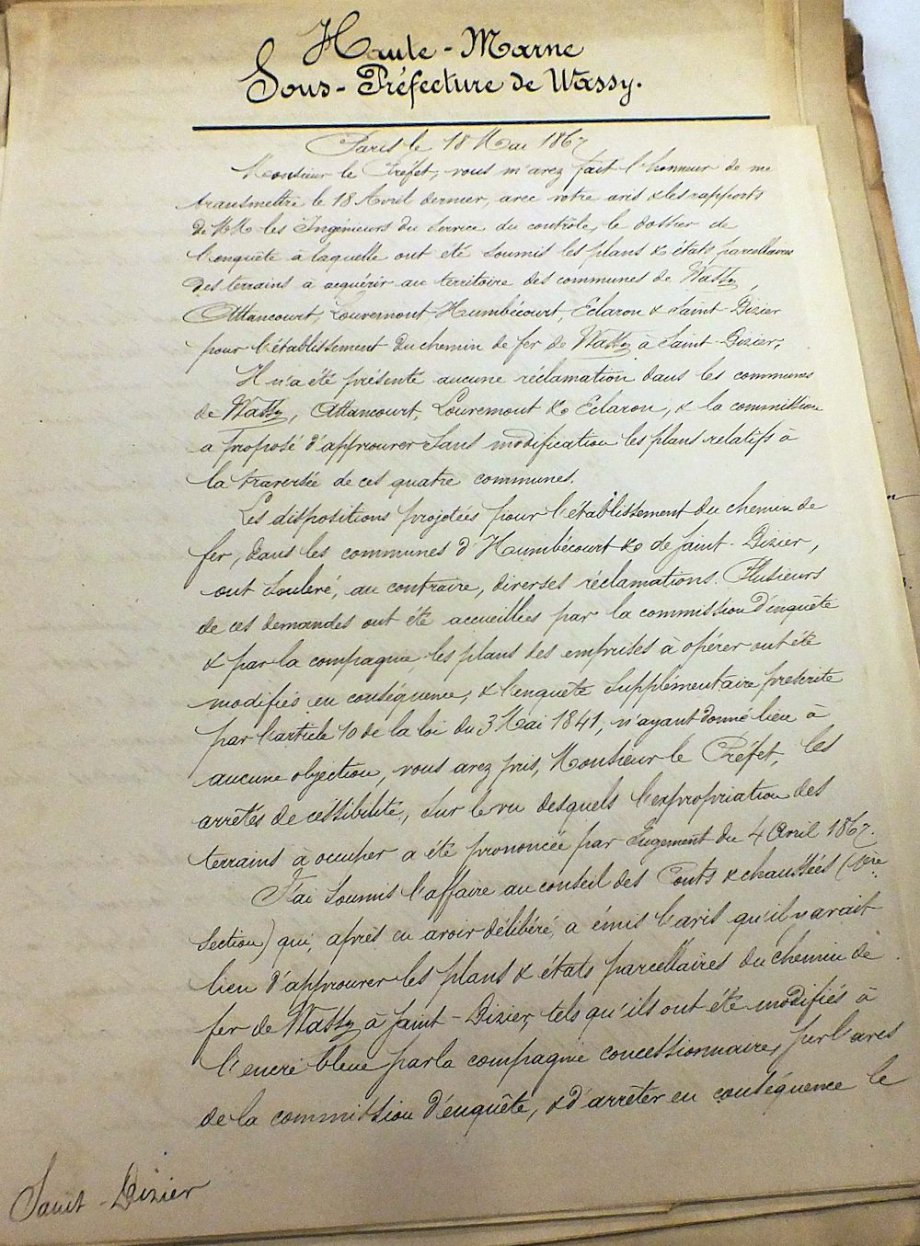 Haute-Marne
Sous-Préfecture de Wassy.
Paris le 18 Mai 1867
Monsieur le Préfet, vous m'avez fait l'honneur de me
transmettre le 18 Avril dernier, avec votre avis & les rapports
de MM. les Ingénieurs du Service du contrôle, le dossier de
l'enquête à laquelle ont été soumis les plans & états parcellaires
des terrains à acquérir au territoire des communes de Wassy,
Attancourt, Louvemont, Humbécourt, Eclaron & Saint-Dizier
pour l'établissement du chemin de fer de Wassy à Saint-Dizier.
Il n'a été présenté aucune réclamation dans les communes
de Wassy, Attancourt, Louvemont & Eclaron, & la commission
a proposé d'approuver sans modification les plans relatifs à
la traversée de ces quatre communes.
Les dispositions projetées pour l'établissement du chemin de
fer, dans les communes d'Humbécourt & de Saint-Dizier,
ont soulevé, au contraire, diverses réclamations. Plusieurs
de ces demandes ont été accueillies par la commission d'enquête
& par la compagnie les plans des emprises à opérer ont été
modifiés en conséquence, & l'enquête supplémentaire prescrite
par l'article 10 de la loi du 3 Mai 1841, n'ayant donné lieu à
aucune objection, vous avez pris, Monsieur le Préfet, les
arrêtés de cessibilité, sur le vu desquels l'expropriation des
terrains à occuper a été prononcée par Jugement du 4 Avril 1867.
J'ai soumis l'affaire au conseil des Ponts & chaussées (1ère
Section) qui, après en avoir délibéré, a émis l'avis qu'il y avait
lieu d'approuver les plans & états parcellaires du chemin de
fer de Wassy à Saint-Dizier, tels qu'ils ont été modifiés à
l'encre bleue par la compagnie concessionnaire, sur l'avis
de la commission d'enquête, & d'arrêter en conséquence le
Saint-Dizier